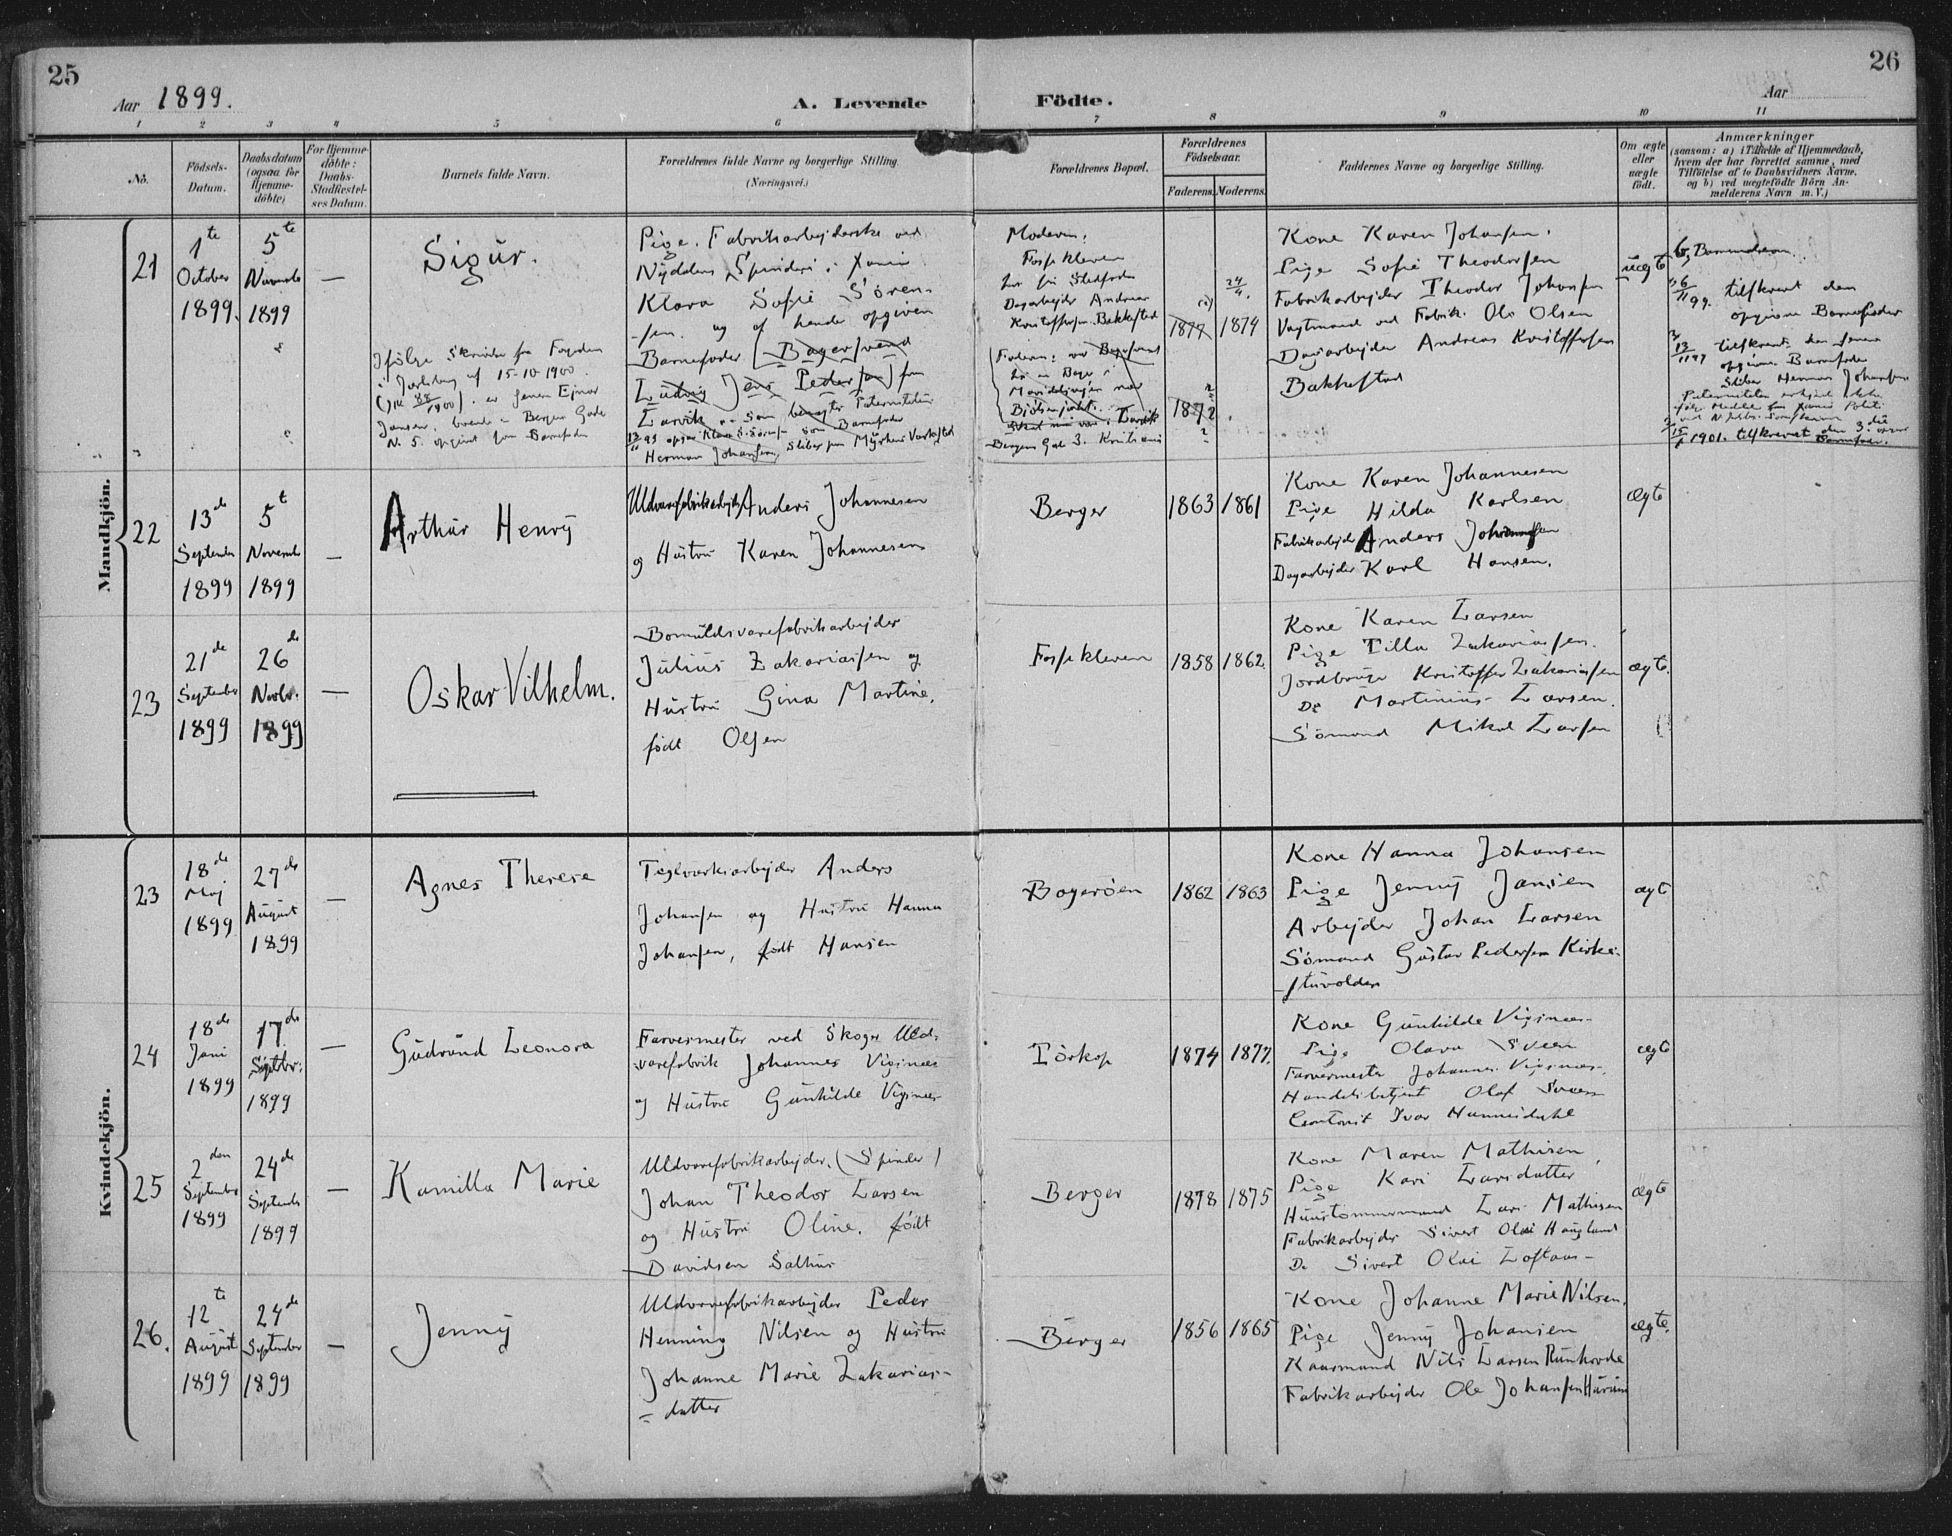 25
26
Aar 1899.
A. Levende
Födte.
Aar
1 2 3 4 5 6 7 8 9 10 11
No.
Födsels-
Datum.
Daabsdatum
(ogsaa for
Hjemme-
döbte)
For Hjemme-
döbte:
Daabs-
Stadfæstel-
ses Datum.
Barnets fulde Navn.
Forældrenes fulde Navne og borgerlige Stilling.
(Næringsvei.)
Forældrenes Bopæl.
Forældrenes
Födselsaar.
Faderens. Moderens.
Faddernes Navne og borgerlige Stilling.
Om ægte
eller
uægte
födt.
Anmærkninger
(saasom: a) i Tilfælde af Hjemmedaab,
hvem der har forrettet samme, med
Tilföielse af to Daabsvidners Navne,
og b) ved uægtefödte Börn An-
melderens Navn m. V.)
Mandkjön.
21
1te
October
1899.
5te
Novemb
1899
—
Sigur.
Ifölge Skrivelse fra Fogden
i Jarlsberg af 15-10-1900
N. 5. opgivet som Barnefader
Pige. Fabrikarbejderske ved
Nydalens Spinderi i Xania
Klara Sofie Sören-
sen. og af hende opgiven
Barnefader [Bagersvend
Ludvig Jens Pedersen] fra
Larvik
Herman Johansen, Sliber paa Myrens Værksted
Moderen:
Fossekleven
Dagarbejder Andreas
Kristoffersen Bakkestad
Bergens Gad 3. Kristiania
1877
1872
24/4.
1874
Kone Karen Johansen.
Pige Sofie Theodorsen
Fabrikarbejder Theodor Johansen
Vagtmand ved Fabrik. Ole Olsen
Dagarbejder Andreas Kristoffersen
Bakkestad
uægte
6/11 99. tilskrevet den
opgivne Barnefader
13/11 97 tilskrevet den
opgivne Barnefader
Sliber Herman Johansen
15/1 1901. tilskrevet den 3die
Barnefader.
22
13de
September
1899
5t
Novemb
1899
—
Arthur Henry
Uldvarefabrikarbejder Anders Johannesen
og Hustru Karen Johannesen
Berger
1863
1861
Kone Karen Johannesen
Pige Hilda Karlsen
Fabrikarbejder Anders Johannesen
Dagarbejder Karl Hansen.
Ægte
23
21de
September
1899
26de
Novbr.
1899
—
Oskar Vilhelm.
Bomuldsvarefabrikarbejder
Julius Zakariassen og
Hustru Gina Martine,
födt Olsen
Fossekleven
1858
1862
Kone Karen Larsen
Pige Tilla Zakariassen.
Jordbruger Kristoffer Zakariassen
Do Martinius Larsen.
Sömand Mikal Larsen
ægte.
Kvindekjön.
23
18de
Maj
1899
27de
August
1899
—
Agnes Therese
Teglværksarbejder Anders
Johansen og Hustru Hanna
Johansen, födt Hansen
Bogeröen
1862
1863
Kone Hanna Johansen
Pige Jenny Jansen
Arbejder Johan Larsen
Sömand Gustav Pedersen Kirke-
stuvolden
ægte
24
18de
Juni
1899
17de
Septbr.
1899
—
Gudrund Leonora
Farvermester ved Skoger Uld-
varefabrik Johannes Viginæs
og Hustru Gunhilde Viginæs
Törkop
1874
1877.
Kone Gunhilde Viginæs-
Pige Olava Sveen
Farvermester Johannes Viginæs-
Handelsbetjent Olaf Sveen
Contorist Ivar Hannisdahl
ægte
25
2den
September
1899
24de
September
1899
—
Kamilla Marie
Uldvarefabrikarbejder. (Spinder)
Johan Theodor Larsen
og Hustru Oline. födt
Davidsen Salhus
Berger
1878
1875
Kone Maren Mathisen,
Pige Kari Larsdatter
Huustömmermand Lars Mathisen
Fabrikarbejder Sivert Olai Haugland
Do Sivert Olai Loftaas-
Ægte
26.
12te
August
1899
24de
September
1899
—
Jenny
Uldvarefabrikarbejder Peder
Henning Nilsen og Hustru
Johanne Marie Zakarias-
datter
Berger
1856
1865
Kone Johanne Marie Nilsen.
Pige Jenny Johansen
Kaarmand Nils Larsen Runhovde
Fabrikarbejder Ole Johansen Haraun
Ægte.